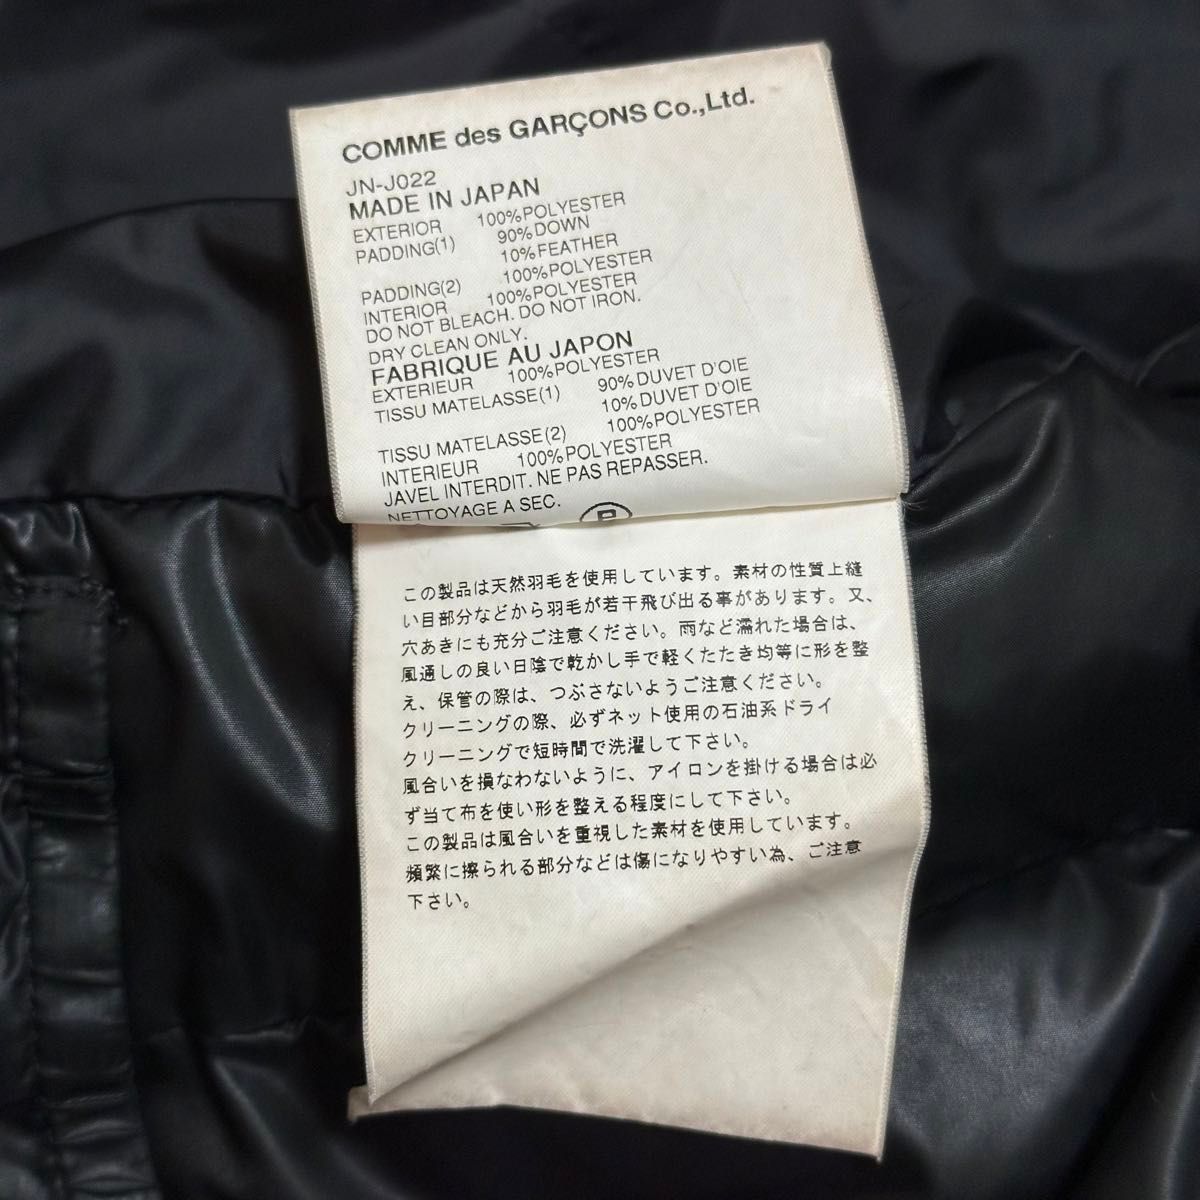 COMME des GARÇONS Co.,Ltd.
JN-J022
MADE IN JAPAN
EXTERIOR 100%POLYESTER
PADDING(1) 90%DOWN
10%FEATHER
PADDING(2) 100%POLYESTER
INTERIOR 100%POLYESTER
DO NOT BLEACH. DO NOT IRON.
DRY CLEAN ONLY.
FABRIQUE AU JAPON
EXTERIEUR 100%POLYESTER
TISSU MATELASSE(1) 90%DUVET D'OIE
10%DUVET D'OIE
TISSU MATELASSE(2) 100%POLYESTER
INTERIEUR 100%POLYESTER
JAVEL INTERDIT. NE PAS REPASSER.
NETTOYAGE A SEC.
P
この製品は天然羽毛を使用しています。素材の性質上縫
い目部分などから羽毛が若干飛び出る事があります。又、
穴あきにも充分ご注意ください。雨など濡れた場合は、
風通しの良い日陰で乾かし手で軽くたたき均等に形を整
え、保管の際は、つぶさないようご注意ください。
クリーニングの際、必ずネット使用の石油系ドライ
クリーニングで短時間で洗濯して下さい。
風合いを損なわないように、アイロンを掛ける場合は必
ず当て布を使い形を整える程度にして下さい。
この製品は風合いを重視した素材を使用しています。
頻繁に擦られる部分などは傷になりやすい為、ご注意
下さい。